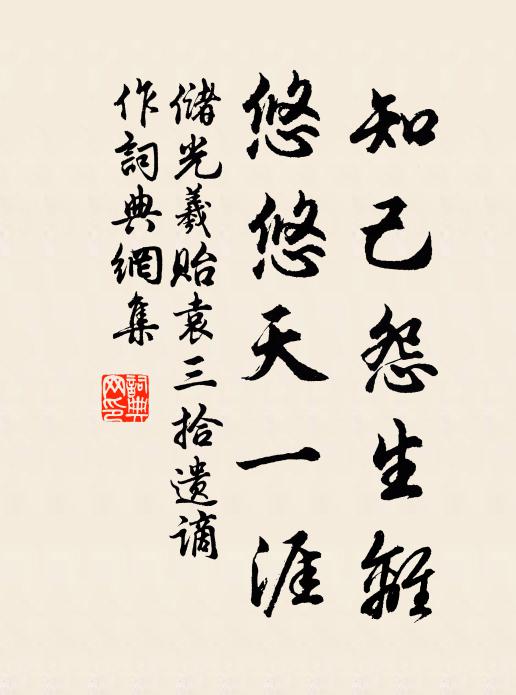 知己怨生離
悠悠天一涯
儲光羲貽袁三拾遺謫
作詞典網集
詞典
网印